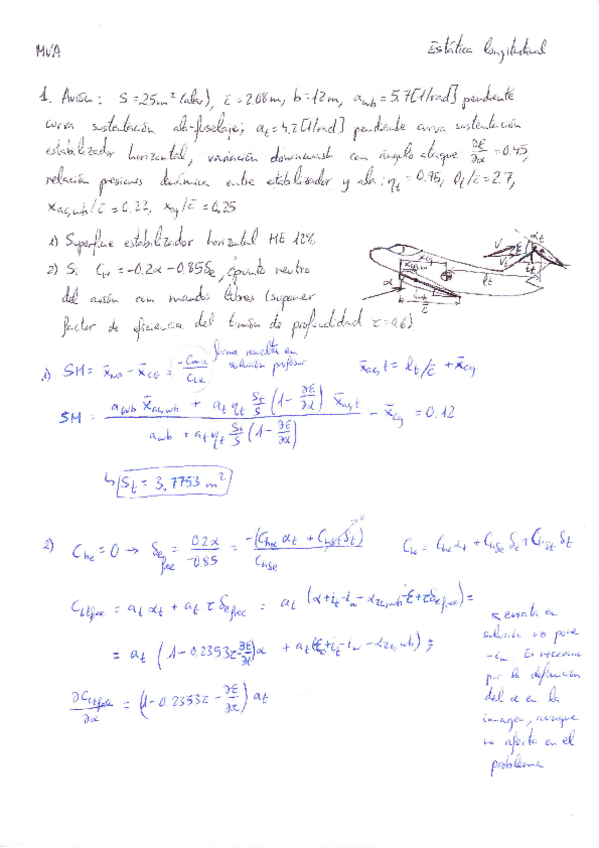 MVA Estática longitudinal
1. Avión: S=25m² (alar), c̄=2.08m, b=12m, a_wb=5.7[1/rad] pendiente
curva sustentación ala-fuselaje; a_t=4.7[1/rad] pendiente curva sustentación
estabilizador horizontal, variación downwash con ángulo ataque ∂ε/∂α=0.45,
relación presiones dinámica entre estabilizador y ala: η_t=0.95, l_t/c̄=2.7,
x_ac,wb/c̄=0.22, x_cg/c̄=0.25
1) Superficie estabilizador horizontal ME 12%
2) Si C_he=-0.2α-0.85δe, ¿punto neutro
del avión con mandos libres (suponer
factor de eficiencia del timón de profundidad τ=0.6)
1) SM= x̄_NP - x̄_CG = -C_mα/C_Lα forma resuelta en solución profesor x̄_ac,t = l_t/c̄ + x̄_cg
SM= (a_wb x̄_ac,wb + a_t η_t S_t/S (1-∂ε/∂α) x̄_ac,t) / (a_wb + a_t η_t S_t/S (1-∂ε/∂α)) - x̄_cg = 0.12
↳ S_t = 3,7753 m²
2) C_he=0 → δe_free = 0.2α/-0.85 = -(C_hα α_t + C_hδt δ_t)/C_hδe C_he = C_hα α_t + C_hδe δe + C_hδt δt
C_Lt,free = a_t α_t + a_t τ δe_free = a_t (α+i_t-i_w-α_ZL,wb-ε+τδe_free) =
= a_t (1-0.2353τ-∂ε/∂α)α + a_t(ε₀+i_t-i_w-α_ZL,wb);
∂C_Lt,free/∂α = (1-0.2353τ-∂ε/∂α) a_t
errata en
solución no pone
-i_w Es necesario
por la definición
del α en la
imagen, aunque
no afecta en el
problema